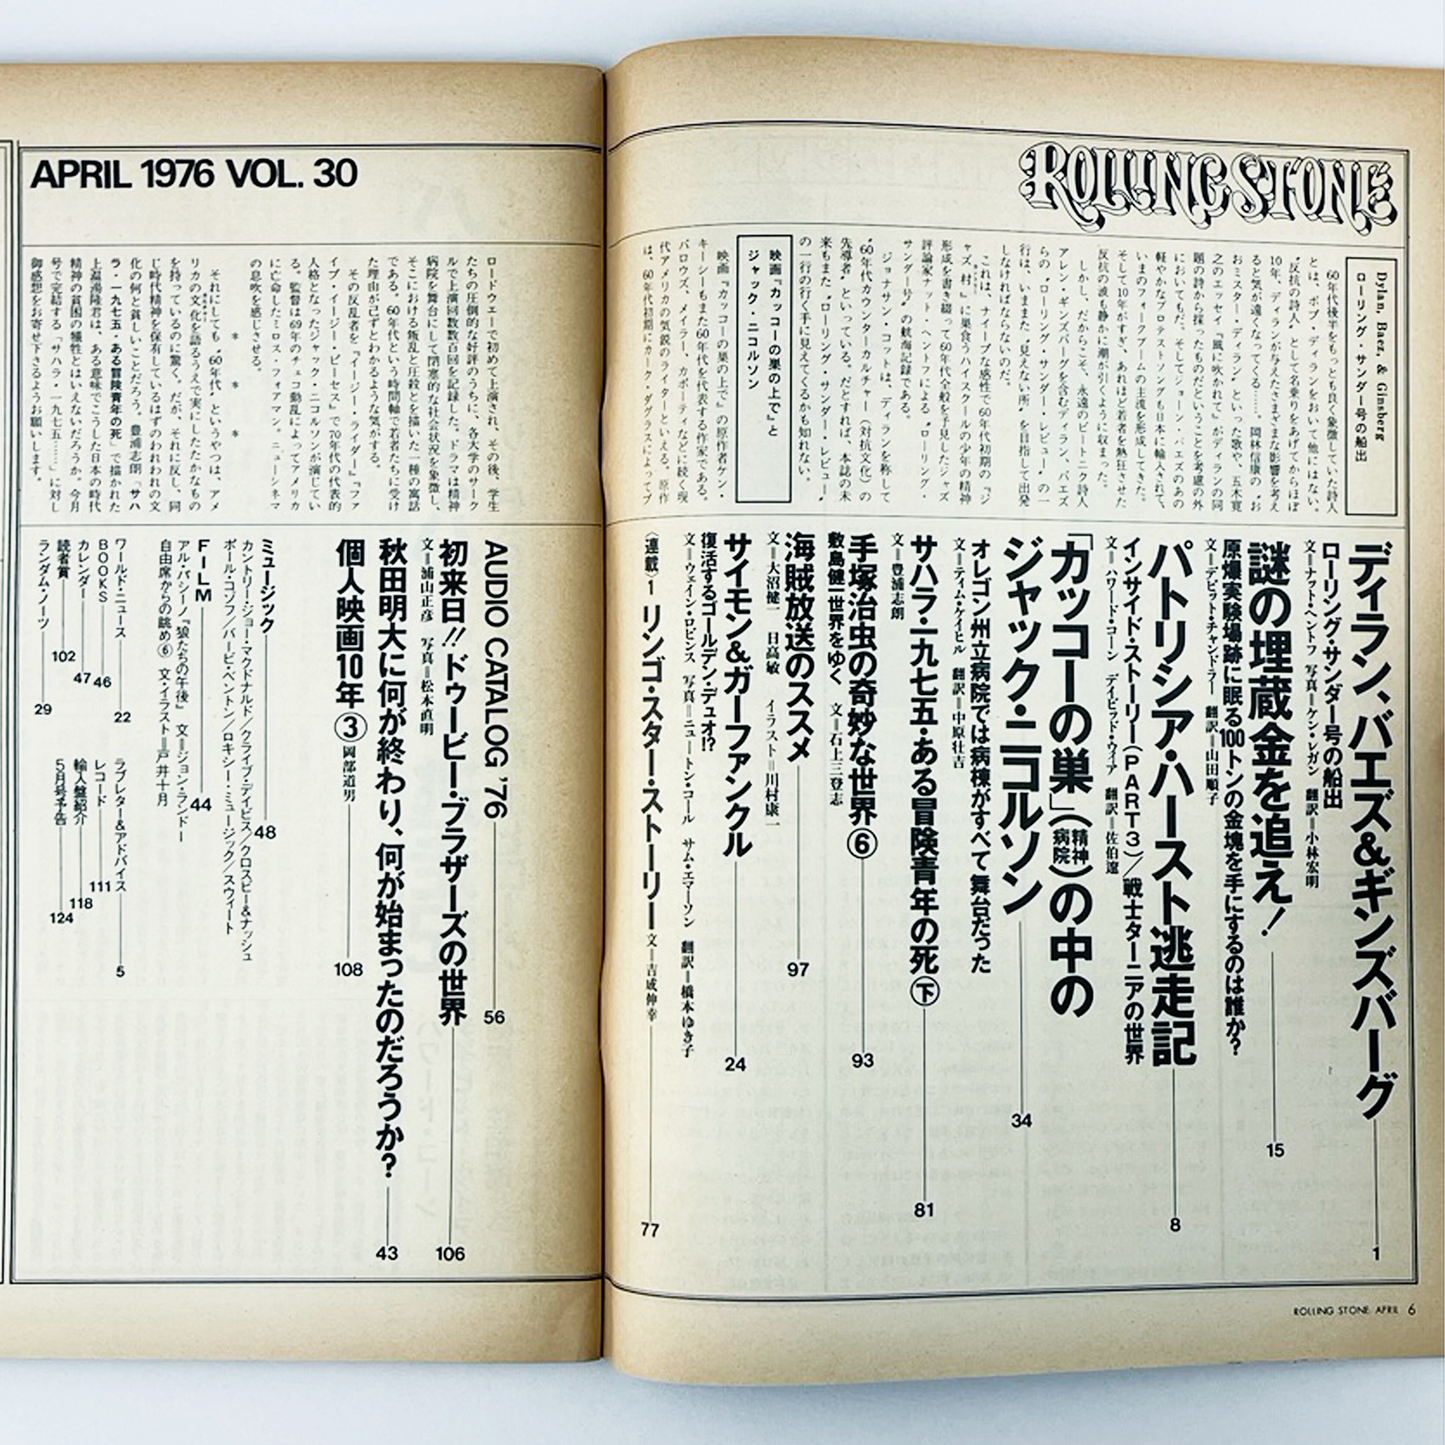 ROLLING STONE
Dylan, Baez, & Ginsberg
ローリング・サンダー号の船出
60年代後半をもっとも良く象徴していた詩人
とは、ボブ・ディランをおいて他にはない。
“反抗の詩人”として名乗りをあげてからほぼ
10年、ディランが与えたさまざまな影響を考え
ると気が遠くなってくる……。岡林信康の“お
おミスター・ディラン”といった歌や、五木寛
之のエッセイ『風に吹かれて』がディランの同
題の詩から採ったものだということを考慮の外
においてもだ。そしてジョーン・バエズのあの
軽やかなプロテストソングも日本に輸入されて、
いまのフォークブームの主流を形成してきた。
そして10年がすぎ、あれほど若者を熱狂させた
反抗の波も静かに潮が引くように収まった。
しかし、だからこそ、永遠のビートニク詩人
アレン・ギンズバーグを含むディラン、バエズ
らの“ローリング・サンダー・レビュー”の一
行は、いままた“見えない所”を目指して出発
しなければならないのだ。
これは、ナイーブな感性で60年代初期の『ジ
ャズ 村』に巣食うハイスクールの少年の精神
形成を書き綴って60年代全般を予見したジャズ
評論家ナット・ヘントフによる“ローリング・
サンダー号”の航海記録である。
ジョナサン・コットは、ディランを称して
“60年代カウンターカルチャー（対抗文化）の
先導者”といっている。だとすれば、本誌の未
来もまた“ローリング・サンダー・レビュー”
の一行の行く手に見えてくるかも知れない。
映画『カッコーの巣の上で』と
ジャック・ニコルソン
映画『カッコーの巣の上で』の原作者ケン・
キーシーもまた60年代を代表する作家である。
バロウズ、メイラー、カポーティなどに続く現
代アメリカの気鋭のライターといえる。原作
は、60年代初期にカーク・ダグラスによってブ
ディラン、バエズ&ギンズバーグ 1
ローリング・サンダー号の船出
文=ナット・ヘントフ 写真=ケン・レガン 翻訳=小林宏明
謎の埋蔵金を追え! 15
原爆実験場跡に眠る100トンの金塊を手にするのは誰か?
文=デビット・チャンドラー 翻訳=山田順子
パトリシア・ハースト逃走記 8
インサイド・ストーリー(PART3)/戦士ターニアの世界
文=ハワード・コーン デイビッド・ウィア 翻訳=佐伯遼
「カッコーの巣」(精神病院)の中の
ジャック・ニコルソン 34
オレゴン州立病院では病棟がすべて舞台だった
文=ティム・ケイヒル 翻訳=中原壮吉
サハラ・一九七五・ある冒険青年の死㊦ 81
文=豊浦志朗
手塚治虫の奇妙な世界⑥ 93
敷島健一世界をゆく 文=石上三登志
海賊放送のススメ 97
文=大沼健一 日高敏 イラスト=川村康一
サイモン&ガーファンクル 24
復活するゴールデン・デュオ!?
文=ウェイン・ロビンス 写真=ニュートン・コール サム・エマーソン 翻訳=橋本ゆき子
〈連載〉1 リンゴ・スター・ストーリー 文=吉成伸幸 77
ROLLING STONE APRIL 6
APRIL 1976 VOL. 30
ロードウェーで初めて上演され、その後、学生
たちの圧倒的な好評のうちに、各大学のサーク
ルで上演回数数百回を記録した。ドラマは精神
病院を舞台にして閉塞的な社会状況を象徴し、
そこにおける叛乱と圧殺とを描いた一種の寓話
である。60年代という時間軸で若者たちに受け
た理由が己ずとわかるような気がする。
その反乱者を『イージー・ライダー』『ファ
イブ・イージー・ピーセス』で70年代の代表的
人格となったジャック・ニコルソンが演じてい
る。監督は69年のチェコ動乱によってアメリカ
に亡命したミロス・フォアマン。ニューシネマ
の息吹を感じさせる。
* * *
それにしても“60年代”というやつは、アメ
リカの文化を語るうえで実にしたたかなもの
を持っているのに驚く。だが、それに反し、同
じ時代精神を保有しているはずのわれわれの文
化の何と貧しいことだろう。豊浦志朗「サハ
ラ・一九七五・ある冒険青年の死」で描かれた
上温湯隆君は、ある意味でこうした日本の時代
精神の貧困の犠牲とはいえないだろうか。今月
号で完結する「サハラ・一九七五……」に対し
御感想をお寄せ下さるようお願いします。
AUDIO CATALOG '76 56
初来日!!ドゥービー・ブラザーズの世界 106
文=浦山正彦 写真=松本直明
秋田明大に何が終わり、何が始まったのだろうか? 43
個人映画10年③ 岡部道男 108
ミュージック 48
カントリー・ジョー・マクドナルド/クライブ・デイビス/クロスビー&ナッシュ
ポール・コソフ/バービ・ベントン/ロキシー・ミュージック/スウィート
FILM 44
アル・パシーノ「狼たちの午後」 文=ジョン・ランドー
自由席からの眺め⑥ 文・イラスト=戸井十月
ワールド・ニュース 22
BOOKS 46
カレンダー 47
読者賞 102
ランダム・ノーツ 29
ラブレター&アドバイス 5
レコード 111
輸入盤紹介 118
5月号予告 124